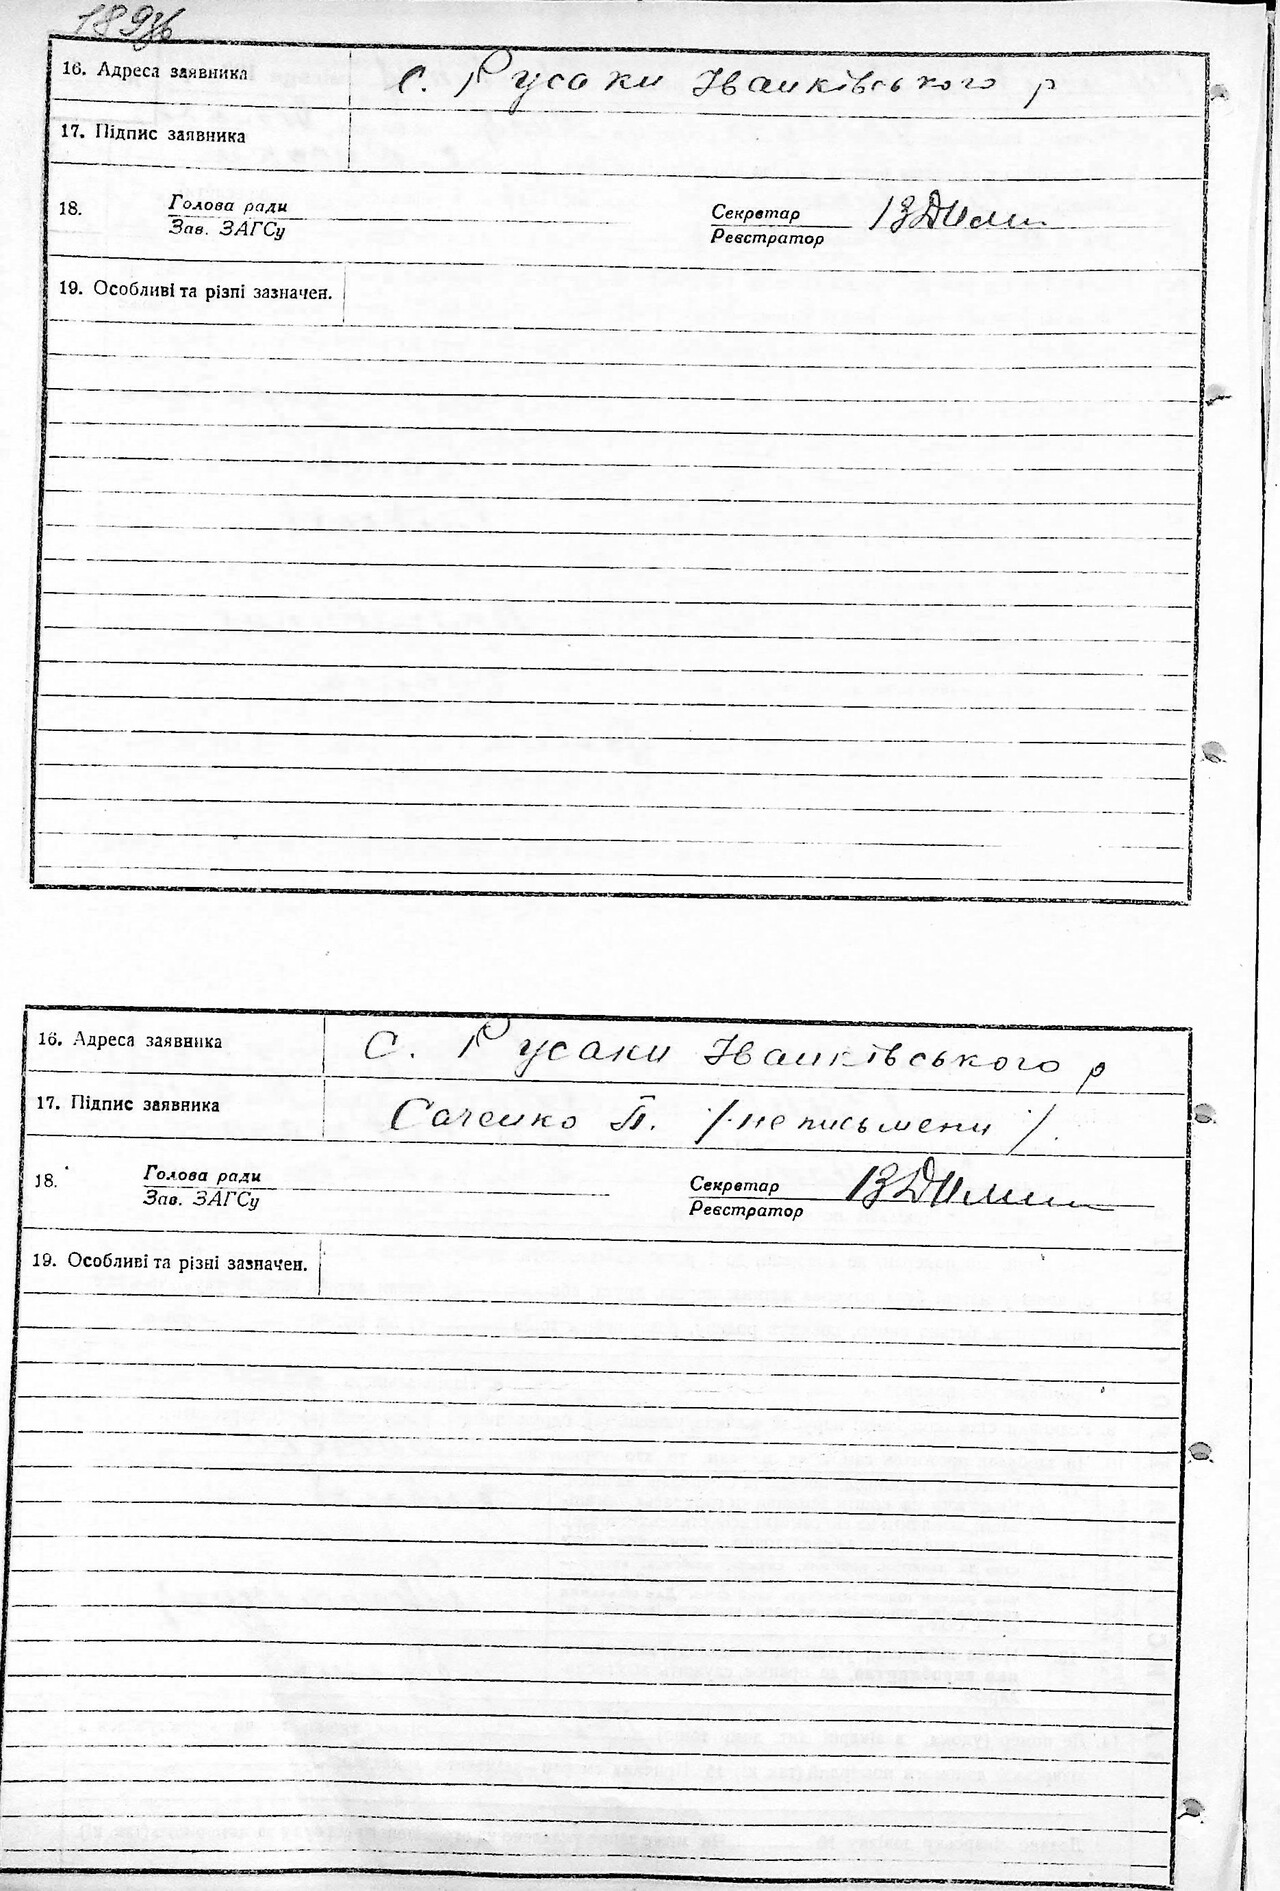 189зв
16. Адреса заявника с. Русаки Іванківського р
17. Підпис заявника
18. Голова ради Секретар
Зав. ЗАГСу Реєстратор
19. Особливі та різні зазначен.
16. Адреса заявника С. Русаки Іванківського р
17. Підпис заявника Саченко П. /неписьмени/.
18. Голова ради Секретар
Зав. ЗАГСу Реєстратор
19. Особливі та різні зазначен.